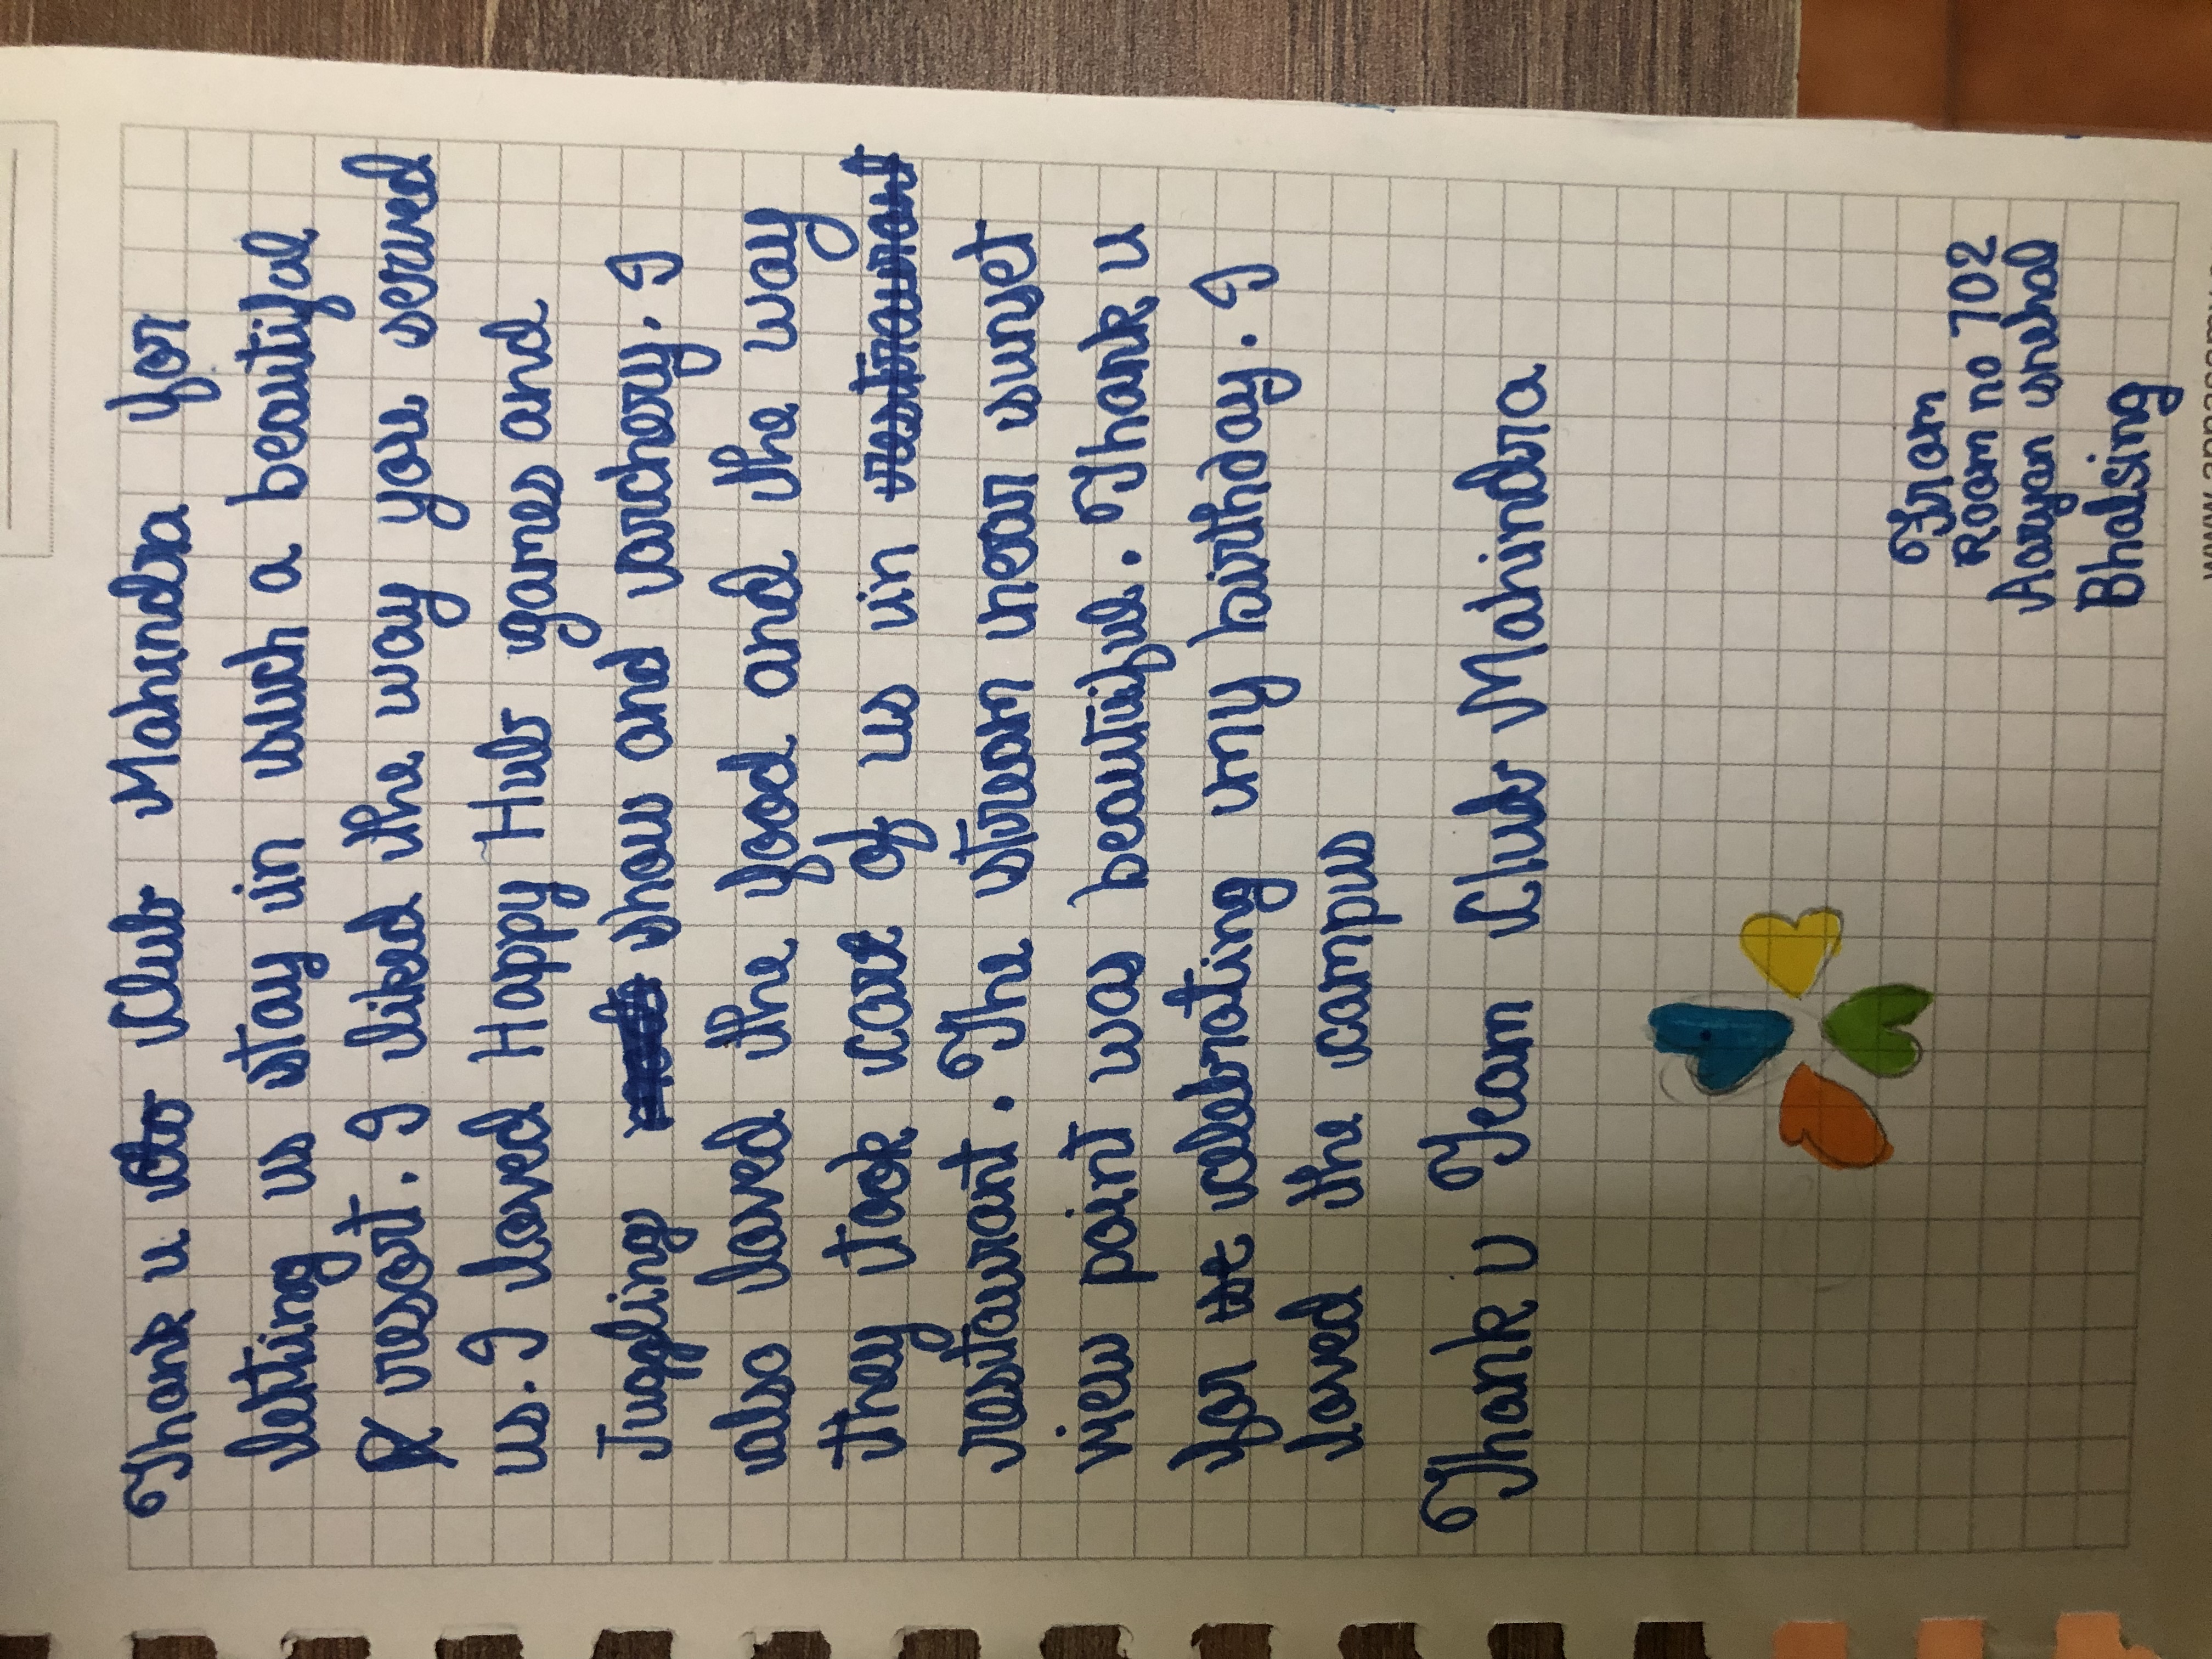 Thank u to Club Mahindra for
letting us stay in such a beautiful
resort. I liked the way you served
us. I loved Happy Hub games and
Juggling show and archery. I
also loved the food and the way
they took care of us in restraurant
restaurant. The stream near sunset
view point was beautiful. Thank u
for celebrating my birthday. I
loved the campus
Thank U Team Club Mahindra
From
Room no 702
Aaryan snehal
Bhalsing